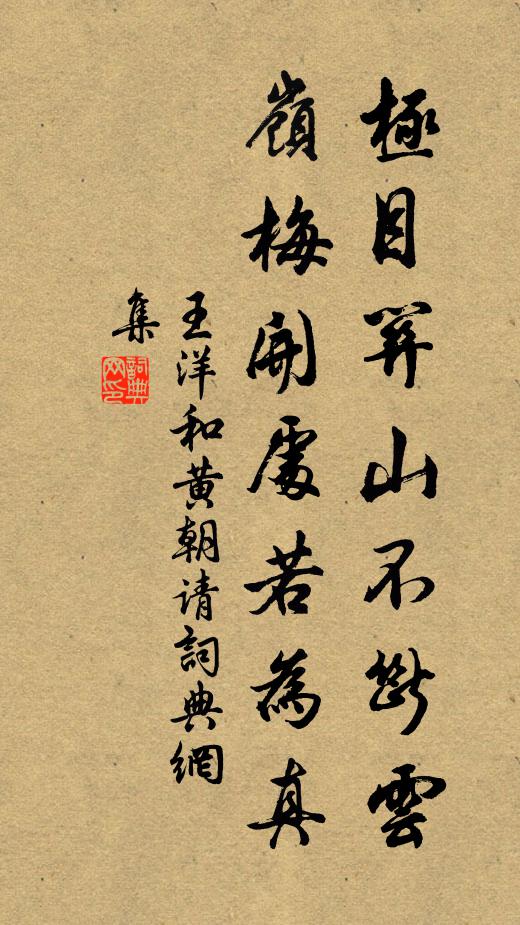 極目關山不斷雲
嶺梅開處若為真
王洋和黃朝请詞典網
集
詞典網印